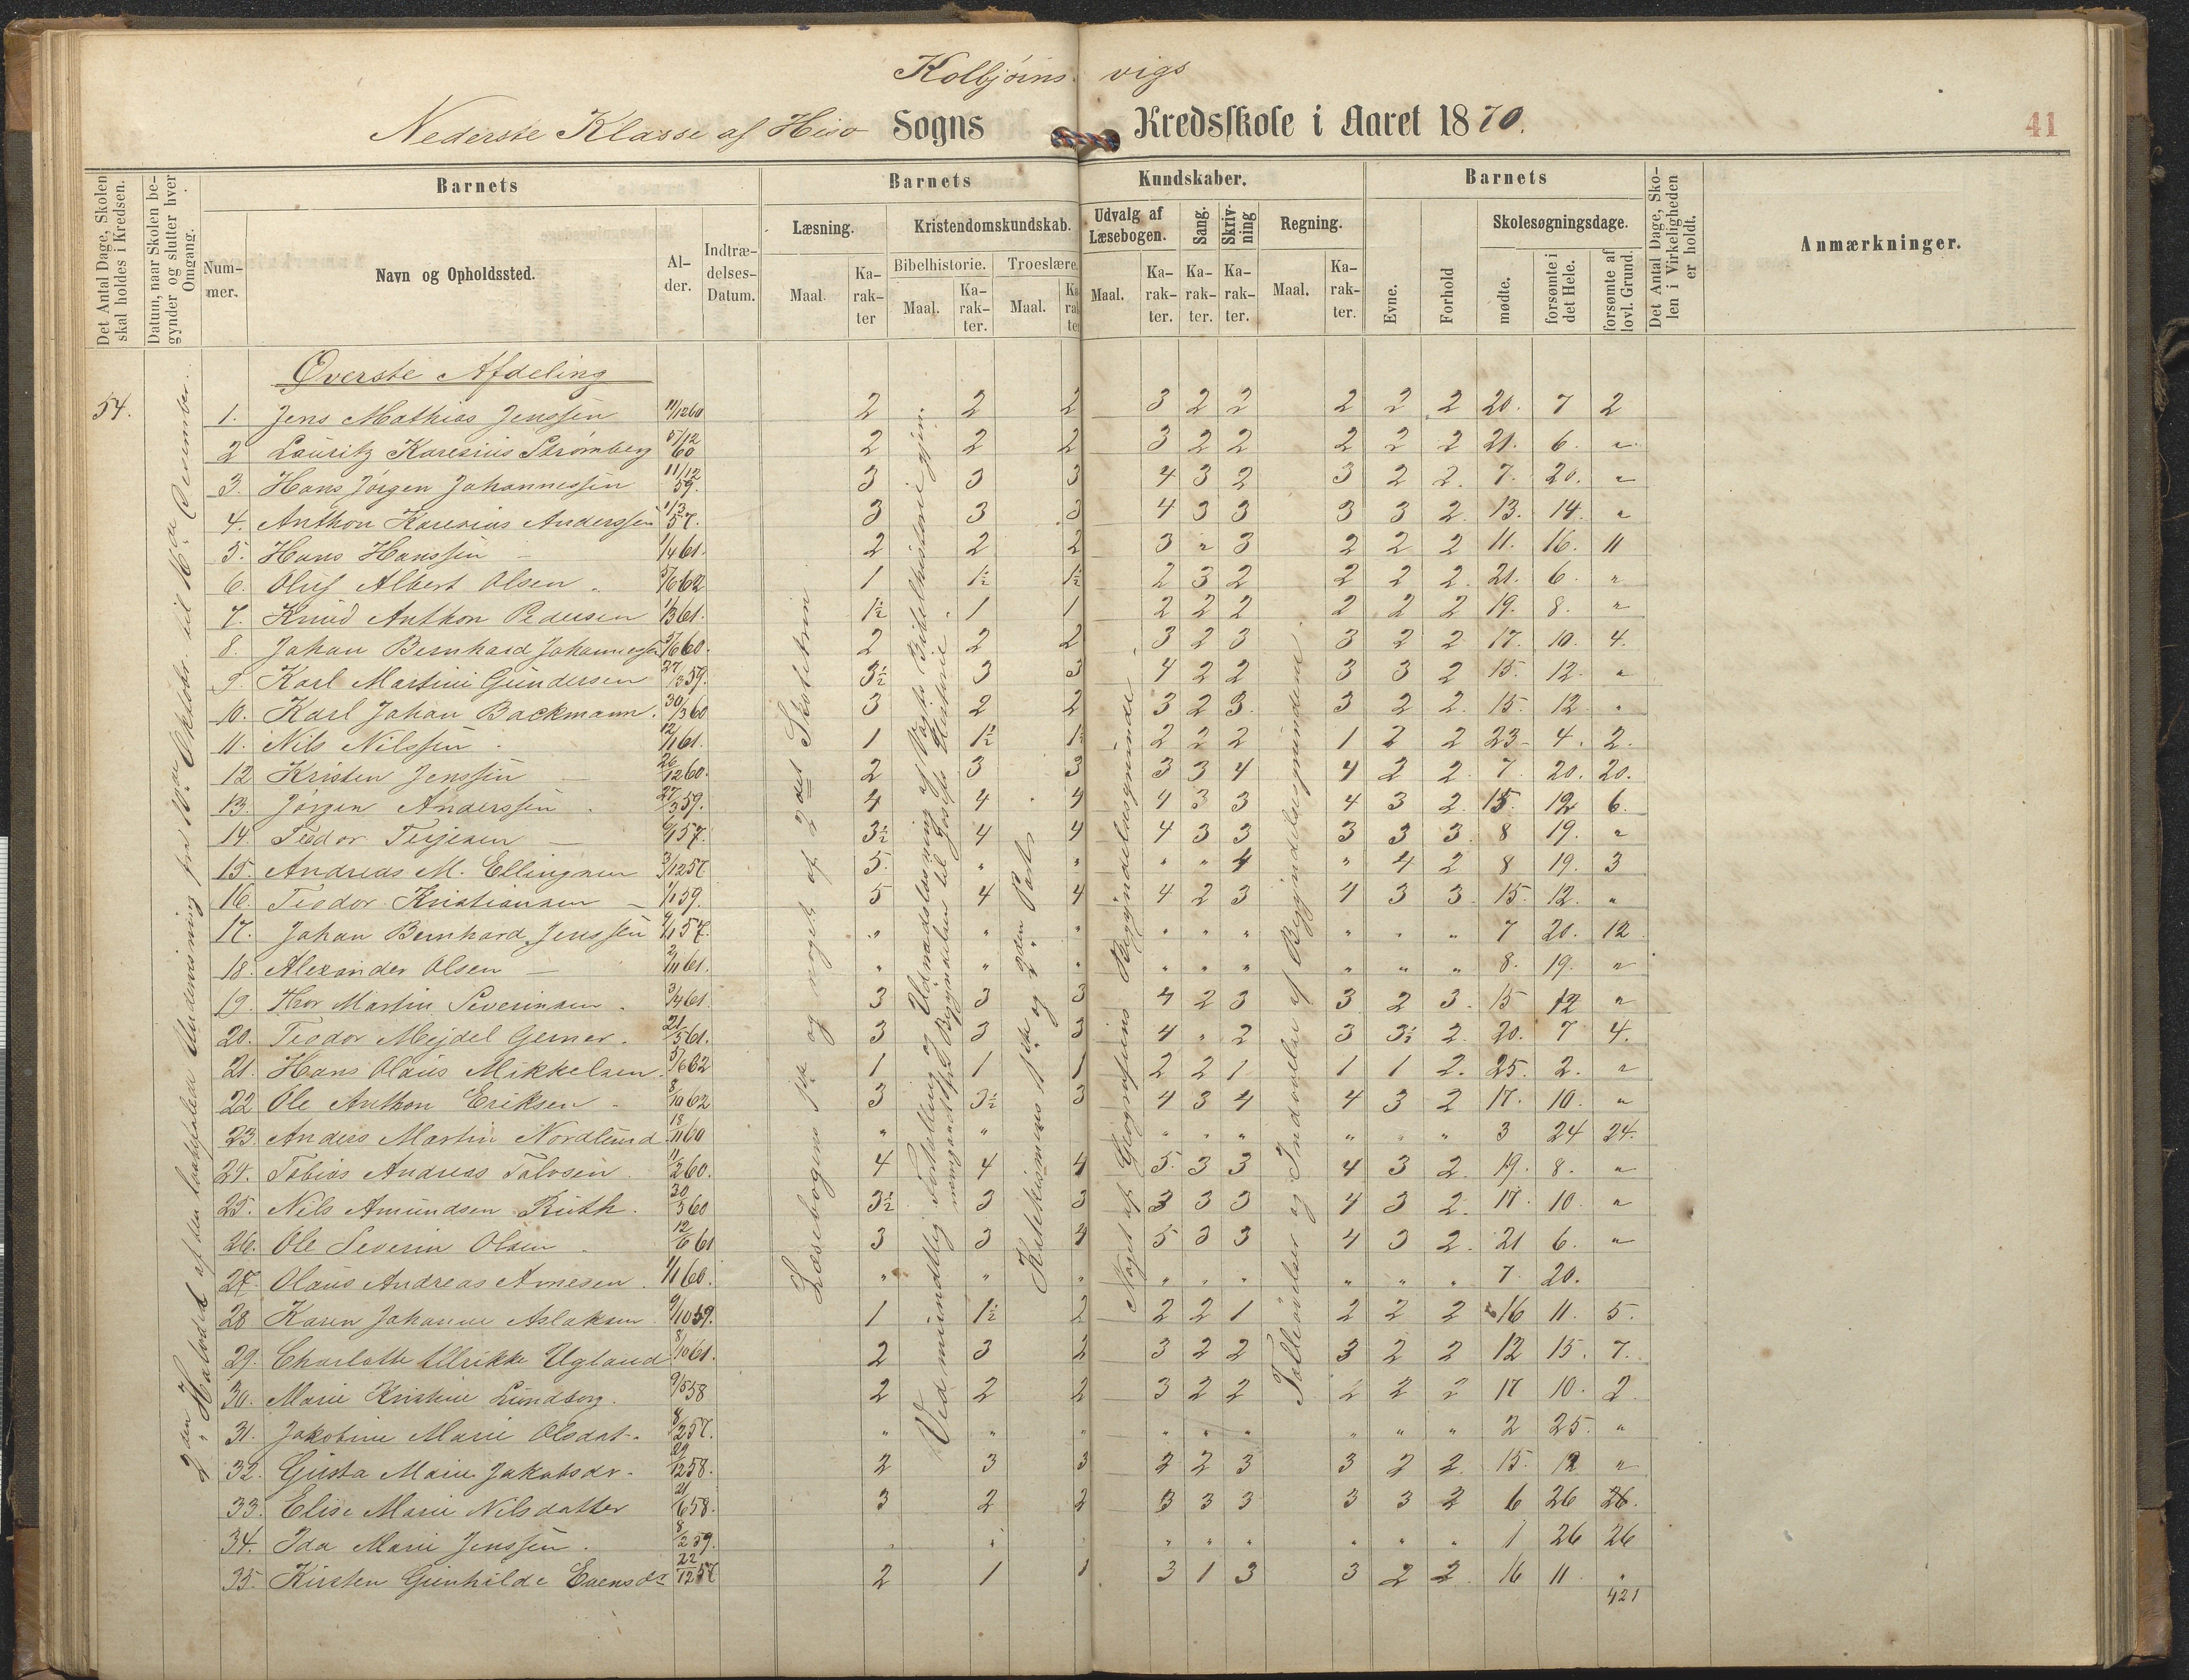 Kolbjørns vigs
Nederste Klasse af Hisø Sogns Kredsskole i Aaret 1870.
41
Det Antal Dage, Skolen skal holdes i Kredsen.
Datum, naar Skolen begynder og slutter hver Omgang.
Barnets
Nummer.
Navn og Opholdssted.
Alder.
Indtrædelses-Datum.
Barnets Kundskaber.
Læsning.
Maal.
Karakter
Kristendomskundskab.
Bibelhistorie.
Maal.
Karakter.
Troeslære.
Maal.
Karakter
Udvalg af Læsebogen.
Maal.
Karakter.
Sang.
Karakter.
Skrivning
Karakter.
Regning.
Maal.
Karakter.
Barnets
Evne.
Forhold
Skolesøgningsdage.
mødte.
forsømte i det Hele.
forsømte af lovl. Grund.
Det Antal Dage, Skolen i Virkeligheden er holdt.
Anmærkninger.
Øverste Afdeling
54.
1. Jens Mathias Jenssen 11/12 60 2 2 2 3 2 2 2 2 2 20. 7 2
2 Lauritz Karesius Strømberg 5/12 60 2 2 2 3 2 2 2 2 2 21. 6. "
3. Hans Jørgen Johannessen 11/12 59. 3 3 3 4 3 2 3 2 2. 7. 20. "
4. Anthon Karesius Anderssen 11/3 57. 3 3 3 4 3 3 3 3 2. 13. 14. "
5. Hans Hanssen 1/4 61. 2 2 2 3 " 3 2 2 2 11. 16. 11
6. Oluf Albert Olsen 5/6 62 1 1½ 1½ 2 3 2 2 2 2. 21. 6. "
7. Knud Anthon Pedersen 1/3 61. 1½ 1 1 2 2 2 2 2 2 19. 8. "
8. Johan Bernhard Johannessen 5/6 60. 2 2 2 3 2 3 3 2 2 17. 10. 4.
9. Karl Martini Gundersen 27/3 59. 3½ 3 3 4 2 2 3 3 2 15. 12. "
10. Karl Johan Backmann. 30/3 60 3 2 2 3 2 3. 3 2 2. 15. 12. "
11. Nils Nilssen 12/11 61. 1 1½ 1½ 2 2 2 1 2 2 23 4. 2.
12 Kristen Jenssen 26/12 60. 2 3 3 3 3 4 4 2 2. 7. 20. 20.
13. Jørgen Anderssen 27/3 59. 4 4 4 4 3 3 4 3 2. 15. 12 6.
14. Teodor Terjesen 6/1 57. 3½ 4 4 4 3 3 3 3 3. 8 19. "
15. Andreas M. Ellingsen 3/12 57 5. " " " " 4 " 4 2 8 19. 3
16. Teodor Kristiansen 1/1 59. 5 4 4 4 2 3 4 3 3. 15. 12. "
17. Johan Bernhard Jenssen 4/1 57. " " " " " " " " " 7 20. 12
18. Alexander Olsen 2/11 61. " " " " " " " " " 8. 19. "
19. Thor Martin Severinsen 3/4 61. 3 3 3 4 2 3 3 2 3. 15 12 "
20. Teodor Mejdel Gerner. 21/5 61. 3 3 3 4 " 2 3 3½ 2. 20. 7 4.
21. Hans Olaus Mikkelsen 5/6 62 1 1 1 2 2 1 1 1 2. 25. 2. "
22 Ole Anthon Eriksen 8/10 62 3 3½ 3 4 3 4 4 3 2 17. 10. "
23. Anders Martin Nordlund 18/11 60 " " " " " " " " 3 24 24.
24. Tobias Andreas Talvsen 11/2 60. 4 4 4 5. 3 3 4 3 2. 19. 8. "
25. Nils Amundsen Ruth. 30/3 60 3½ 3 3 3 3 3 4 3 2. 17. 10. "
26. Ole Severin Olsen 12/6 61 3 3 4 5 3 3 4 3 2. 21 6. "
27. Olaus Andreas Arnesen. 1/1 60. " " " " " " " " " 7. 20.
28 Karen Johanne Aslaksen 9/10 59. 1 1½ 2 2 2 1 2 2 2 16 11. 5.
29. Charlotte Ulrikke Ugland 8/10 61. 2 3 2 3 2 2 3 2 2 12 15. 7.
30. Marie Kristine Lundborg. 9/5 58 2 2 2 3 2 2 2 2 2 17 10. 2
31. Jakobine Marie Olsdat. 8/2 57. " " " " " " " " " 2 25. "
32. Gusta Marie Jakobsdr. 29/12 58. 2 3 3 2 2 3 3 2 2. 15. 12 "
33. Elise Marie Nilsdatter 21/6 58. 3 2 2 3 3 3 3 3 2 6 26 26.
34. Ida Marie Jenssen. 8/2 59. " " " " " " " " " 1 26 26
35. Kirsten Gunhilde Evensdr 22/12 57 2 1 1 3 1 3 3 2 2. 16 11. "
421
2den Halvdel af den lovbefalede Undervisning fra 10de Oktober til 16de December.
Læsebogens 1ste og noget af 2det Skoletrin
Ved mundtlig Fortælling og Udenadslæsning af Vogts Bibelhistorie gjen-
nemgaaet fra Begyndelsen til Josefs Historie.
Katekismens 1ste og 2den Part.
Noget af Geografiens Begyndelsesgrunde.
Talleøvelser og Indøvelse af Begyndelsesgrundene.